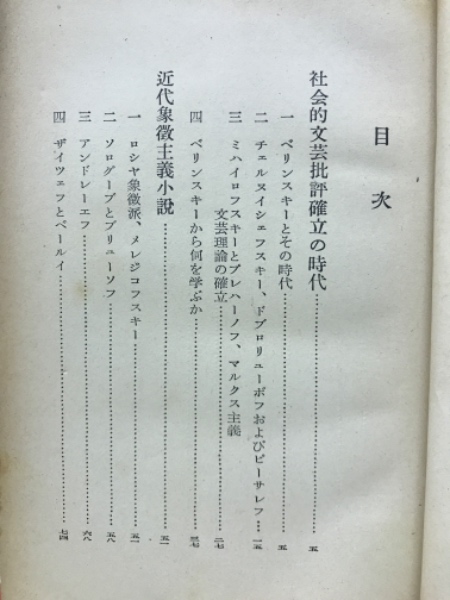 目次
社会的文芸批評確立の時代……五
一 ベリンスキーとその時代……五
二 チェルヌイシェフスキー、ドブロリューボフおよびピーサレフ……一五
三 ミハイロフスキーとプレハーノフ、マルクス主義
文芸理論の確立……二七
四 ベリンスキーから何を学ぶか……三七
近代象徴主義小説……五一
一 ロシヤ象徴派、メレジコフスキー……五一
二 ソログーブとブリューソフ……五八
三 アンドレーエフ……六八
四 ザイツェフとベールイ……七四